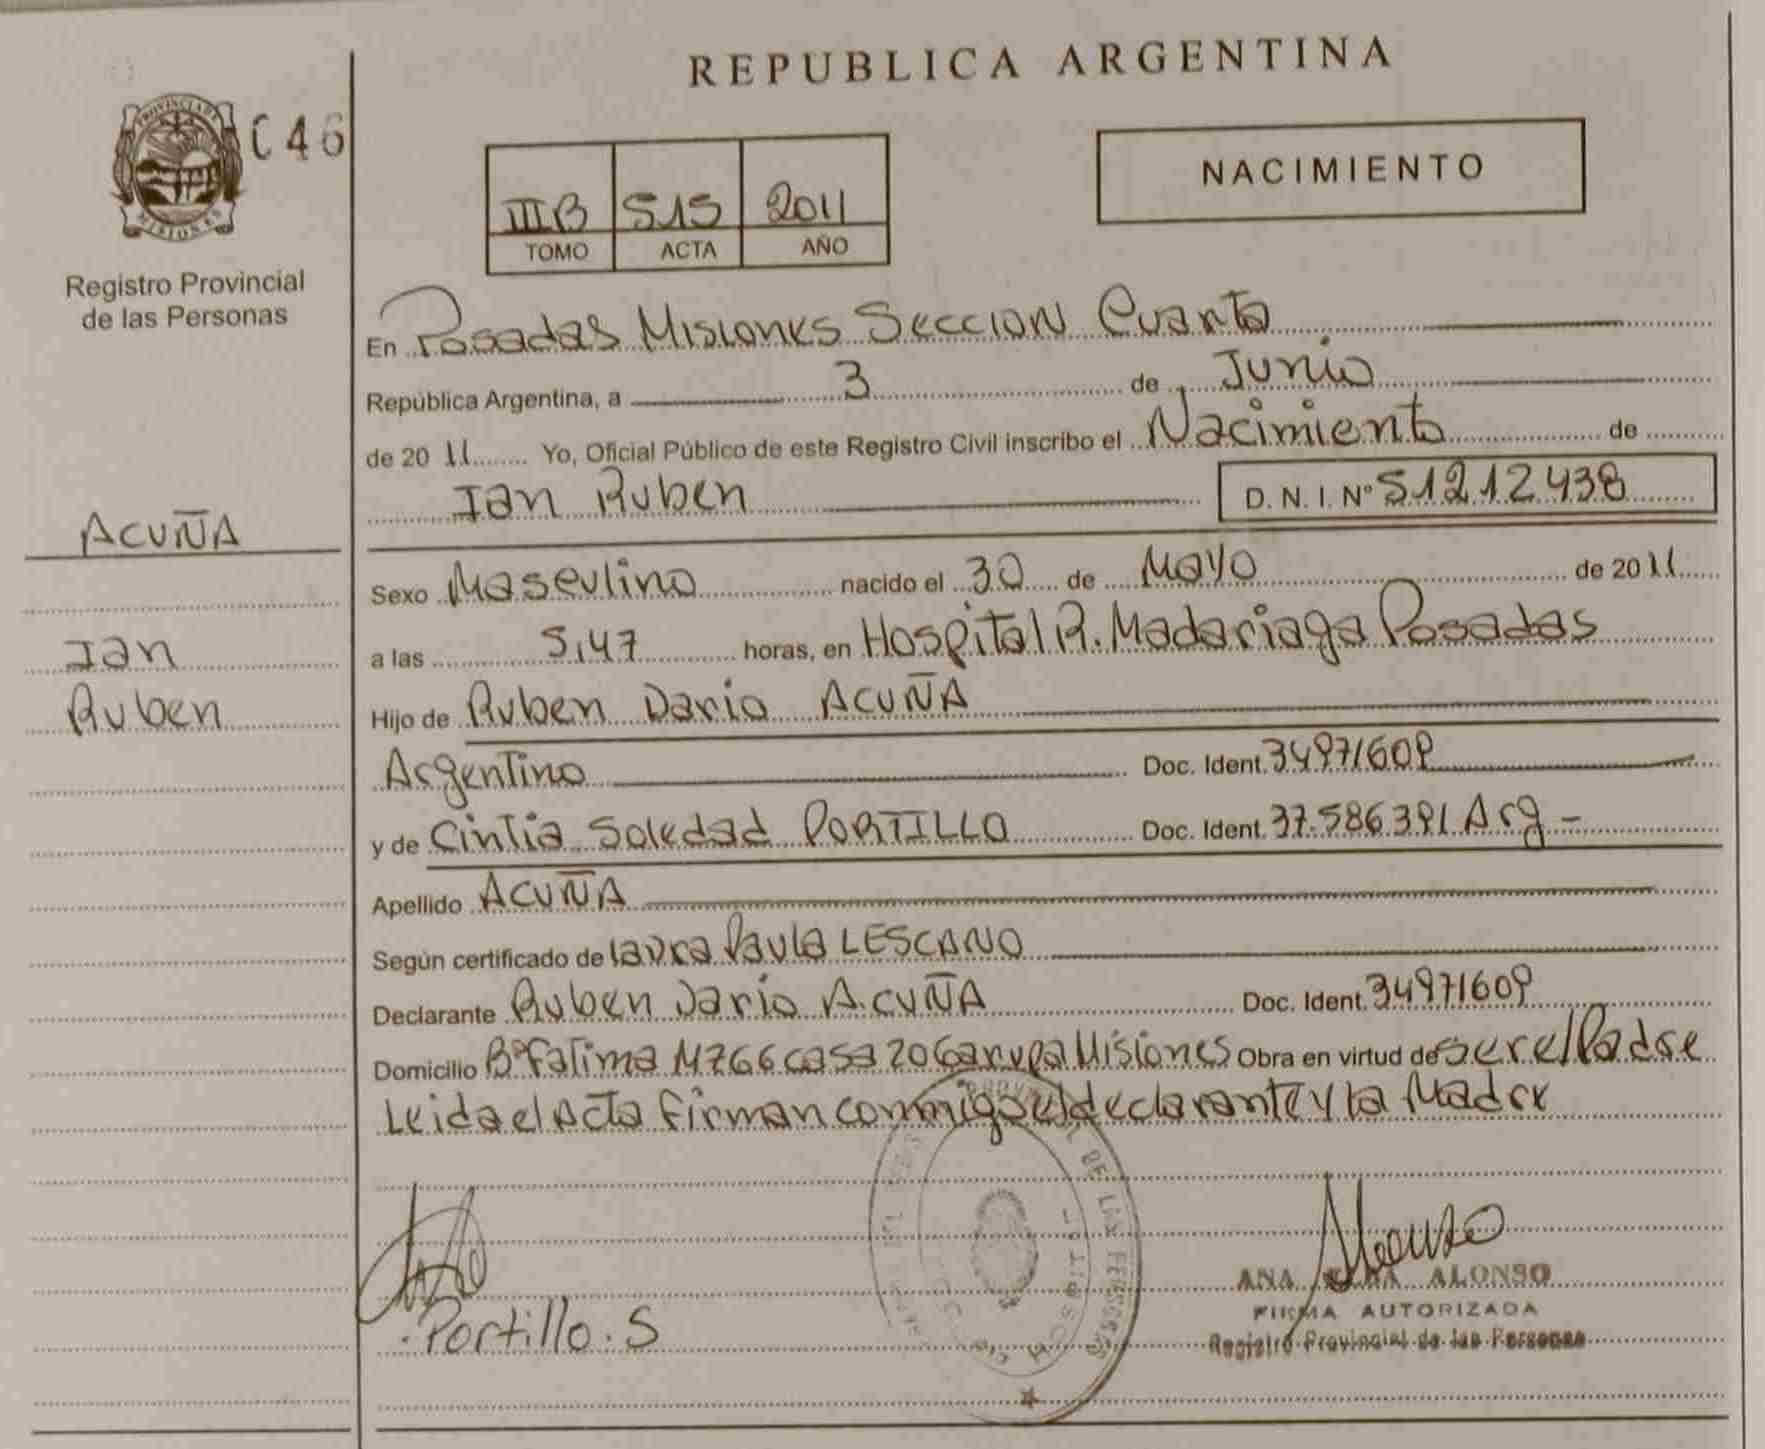 REPUBLICA ARGENTINA
PROVINCIA DE
MISIONES
C 46
Registro Provincial
de las Personas
ACUÑA
Ian
Ruben
IIIB 515 2011
TOMO ACTA AÑO
NACIMIENTO
En Posadas Misiones Seccion Cuarta
República Argentina, a 3 de Junio
de 20 11 Yo, Oficial Público de este Registro Civil inscribo el Nacimiento de
Ian Ruben D. N. I. Nº 51212438
Sexo Masculino nacido el 30 de Mayo de 20 11
a las 5,47 horas, en Hospital R. Madariaga Posadas
Hijo de Ruben Dario ACUÑA
Argentino Doc. Ident. 34971609
y de Cintia Soledad PORTILLO Doc. Ident. 37.586391 Arg -
Apellido ACUÑA
Según certificado de Laura Paula LESCANO
Declarante Ruben Dario ACUÑA Doc. Ident. 34971609
Domicilio Bº Fatima MZ66 casa 20 Garupa Misiones Obra en virtud de ser el Padre
Leida el Acta firman conmigo el declarante y la Madre
Portillo. S
ANA ALONSO
FIRMA AUTORIZADA
Registro Provincial de las Personas